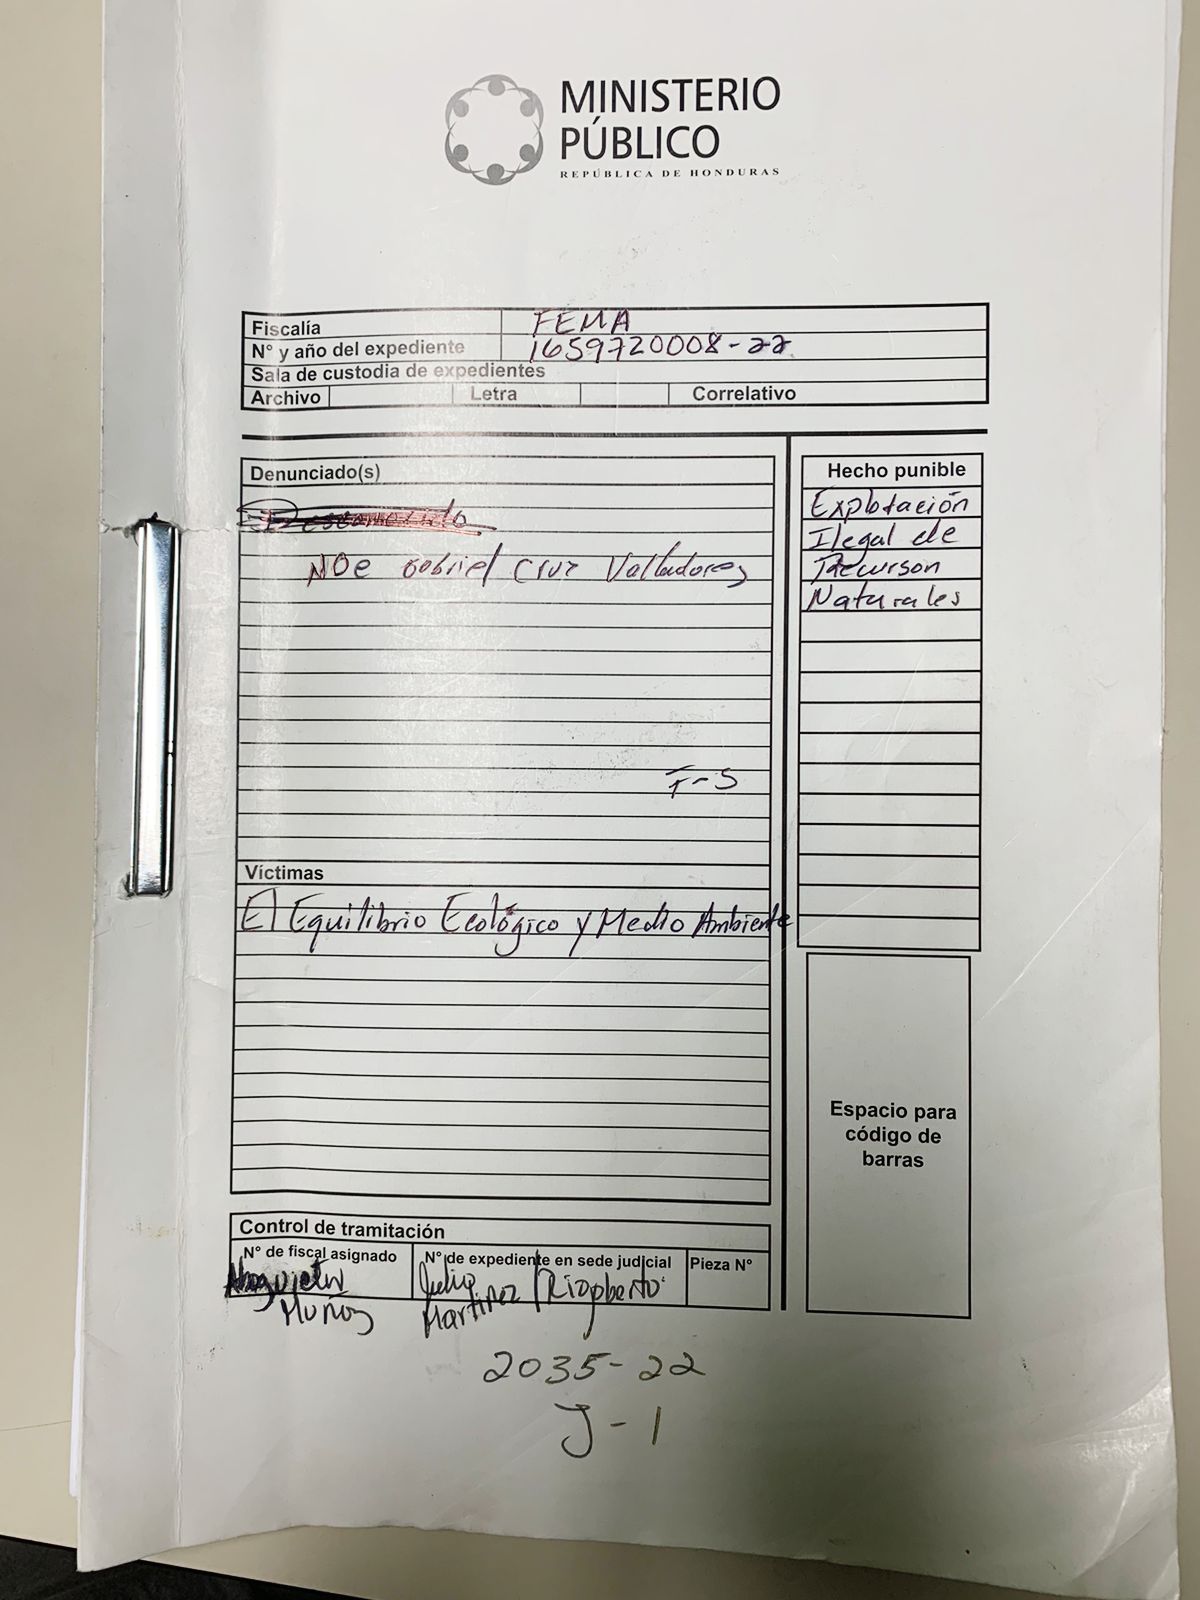 MINISTERIO
PÚBLICO
REPÚBLICA DE HONDURAS
Fiscalía FEMA
N° y año del expediente 1659720008-22
Sala de custodia de expedientes
Archivo Letra Correlativo
Denunciado(s)
Desconocido
NOe Gabriel Cruz Valladares
F-5
Víctimas
El Equilibrio Ecológico y Medio Ambiente
Hecho punible
Explotación
Ilegal de
Recurson
Naturales
Espacio para
código de
barras
Control de tramitación
N° de fiscal asignado N° de expediente en sede judicial Pieza N°
Julio Rigoberto
Muñoz Martinez
2035-22
J-1